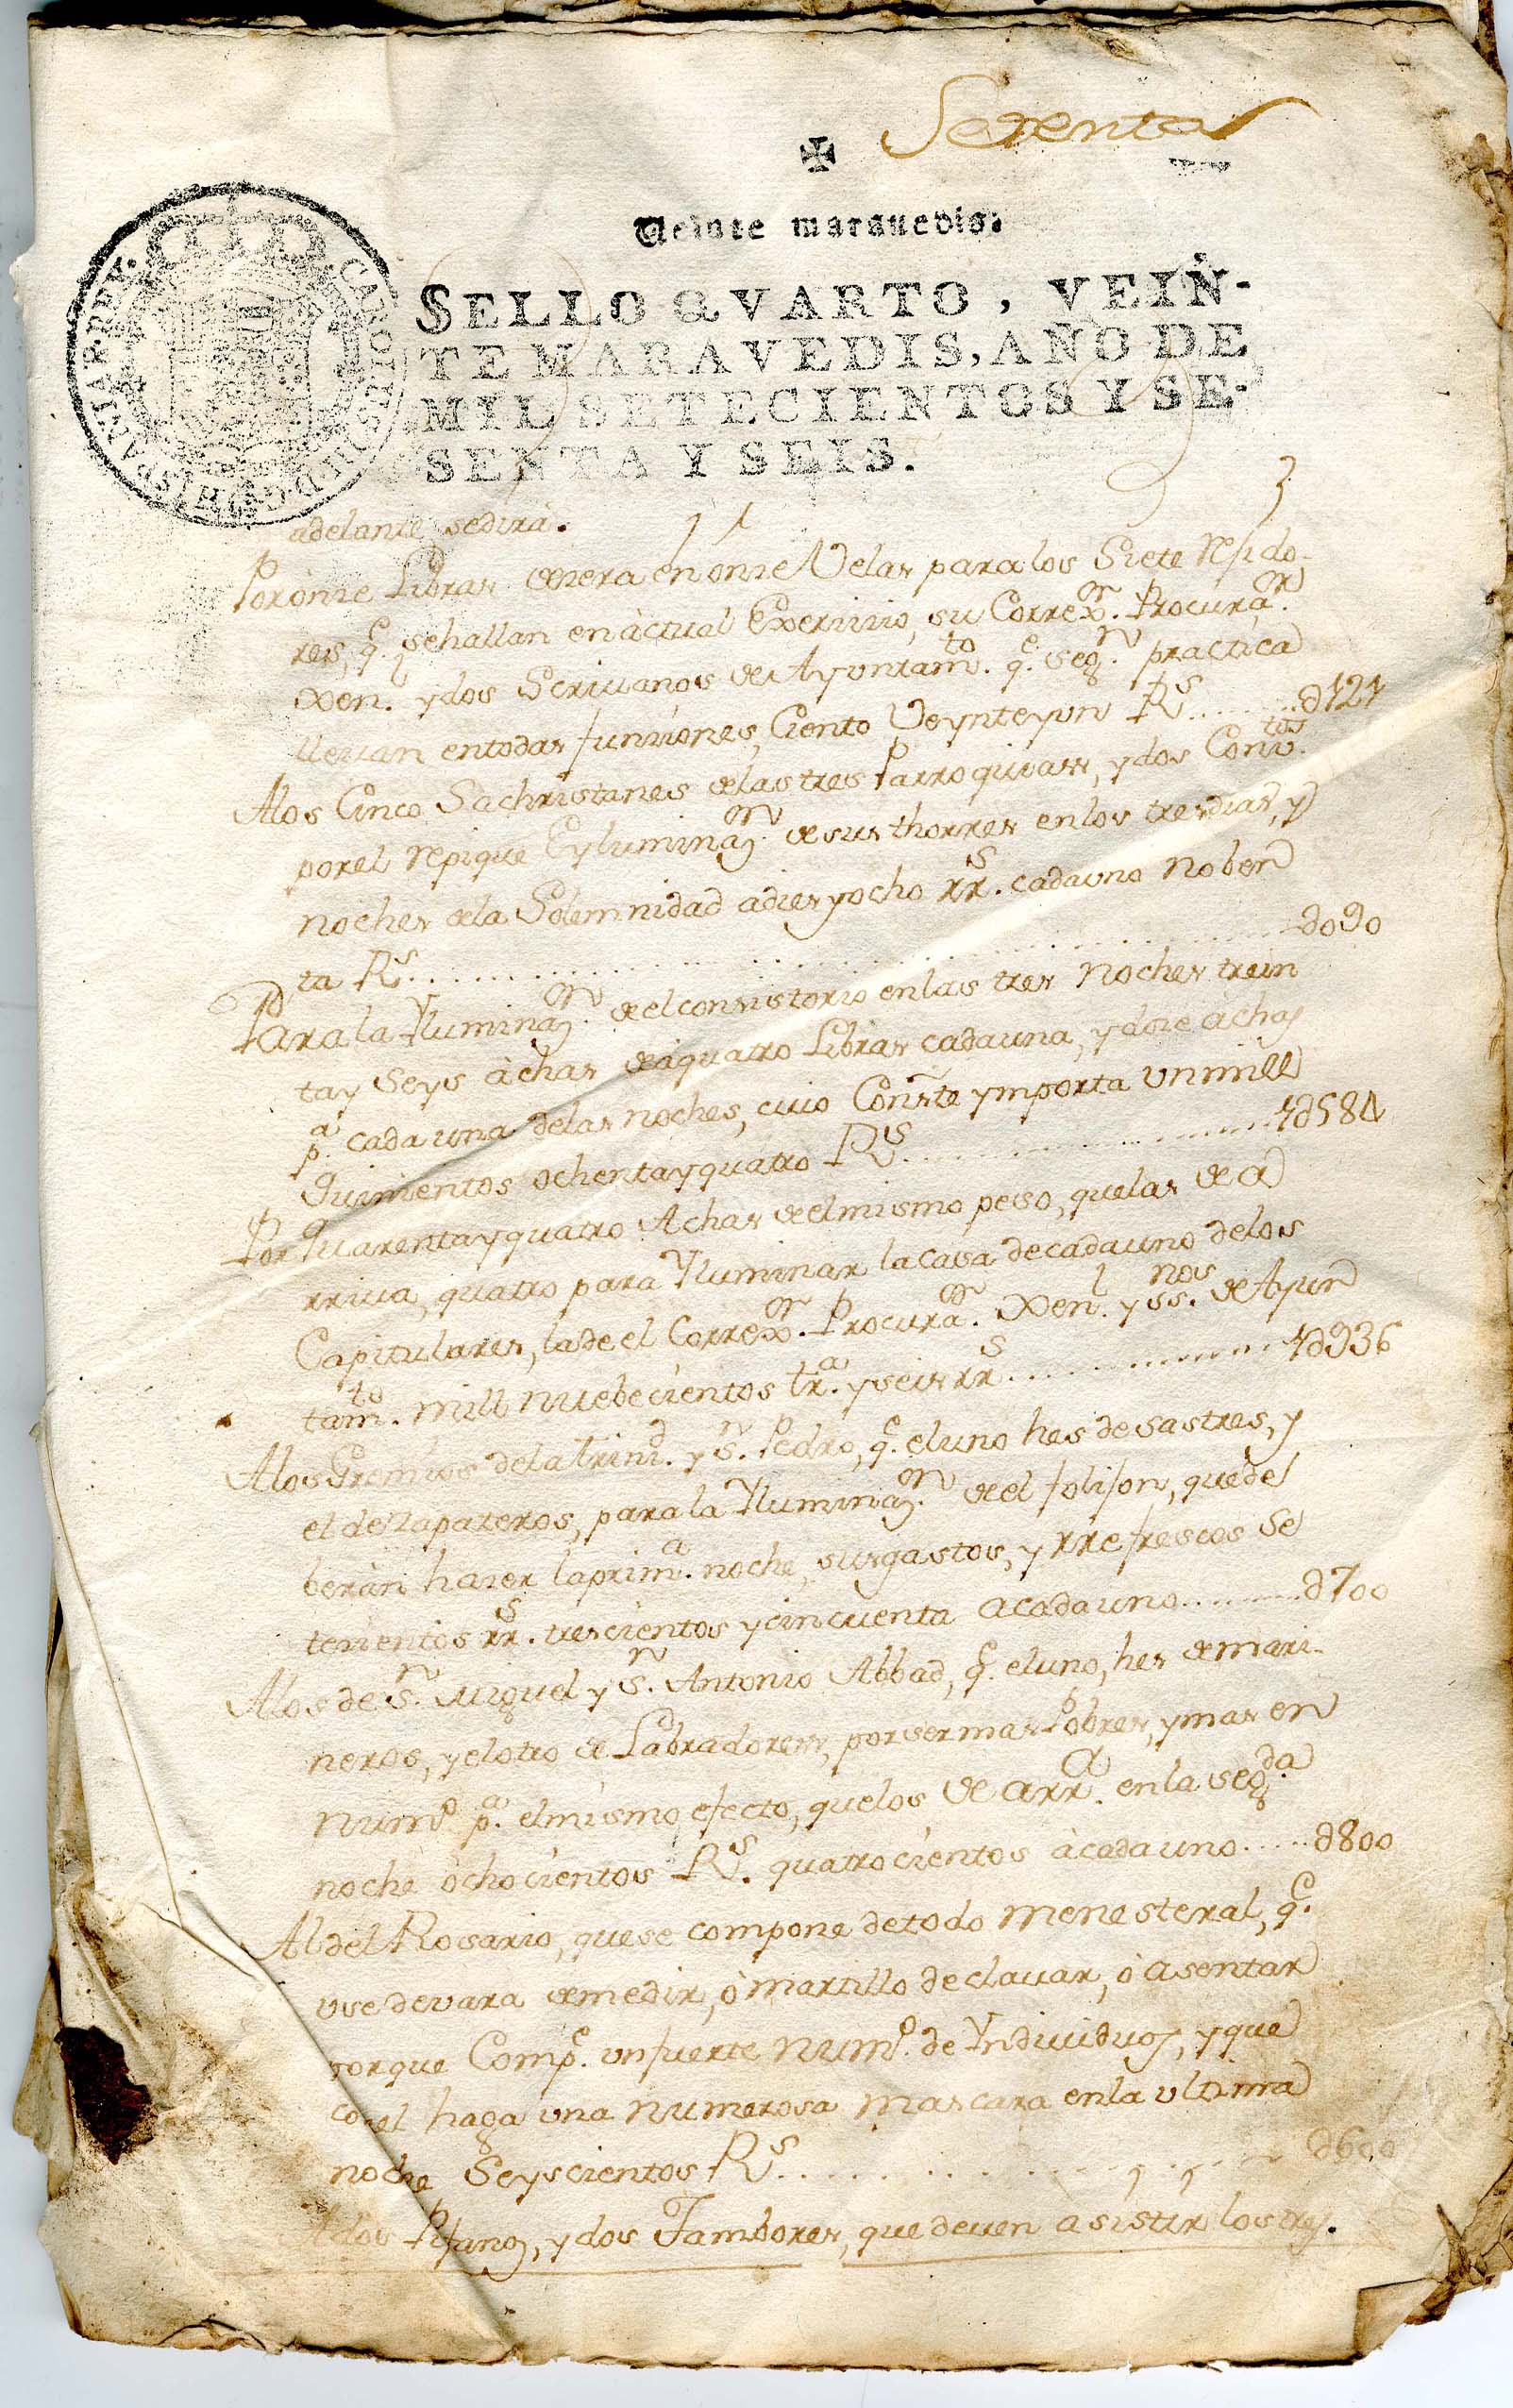 Setenta
✠
Veinte maravedis.
SELLO QVARTO, VEIN-
TE MARAVEDIS, AÑO DE
MIL SETECIENTOS Y SE-
SENTA Y SEIS.
HISPANIAR. REX.
adelante sedirà.
Porònze Libras de zera en onze Velas para los Siete Rejido-
res, q.e sehallan en àctual Exerizizio, su Correx.or Procura.or
Xen.l ydos Scrivanos de Ayuntam.to q.e seg.n practica
llevan entodas funziones, Ciento Veynteyun R.s ........ d121
Alos Cinco Sachristanes delas tres Parroquias, ydos Conv.tos
porel Repique Eyluminaz.on de sus thorres enlos tres dias, y
noches dela Solemnidad adies yocho rr.s cadauno Noben
ta R.s ........ d090
Parala Yluminaz.on de el consistorio enlas tres noches trein
tay Seys àchas de àquatro Libras cadauna, ydoze àchas
p.a cada una delas noches, cuio Conste ymporta Unmill
Quinientos ochentayquatro R.s ........ 1d584
Por Quarentayquatro Achas de elmismo peso, quelas de a
rriva, quatro para Yluminar lacasa decadauno delos
Capitulares, lade el Correx.or Procura.or Xen.l y ss.nos de Ayun
tam.to Mill Nuebecientos tr.a yseis rr.s ........ 1d936
Alos Gremios dela Trini.d y S.n Pedro, q.e eluno hes desastres, y
el dezapateros, parala Yluminaz.on de el folijon, quede
beràn hazer laprim.a noche, susgastos, y rrefrescos Se
tecientos rr.s trescientos ycincuenta acadauno ........ d700
Alos de S.n Miguel y S.n Antonio Abbad, q.e eluno, hes de Mari-
neros, yelotro de Labradores, porser mas Pobres, ymas en
Num.o p.a elmismo efecto, quelos de arr.a enla seg.da
noche òchocientos R.s quatrocientos àcadauno ...... d800
Al del Rosario, quese compone detodo Menesteral, q.e
use devara demedir, ò martillo declavar, ò asentar
porque Comp.e unfuerte Num.o de Yndividuos, yque
conel haga una Numerosa Mascara enla ultima
noche Seyscientos R.s ........ d600
Ados Pifanos, ydos Tambores, quedeven asistir lostres.